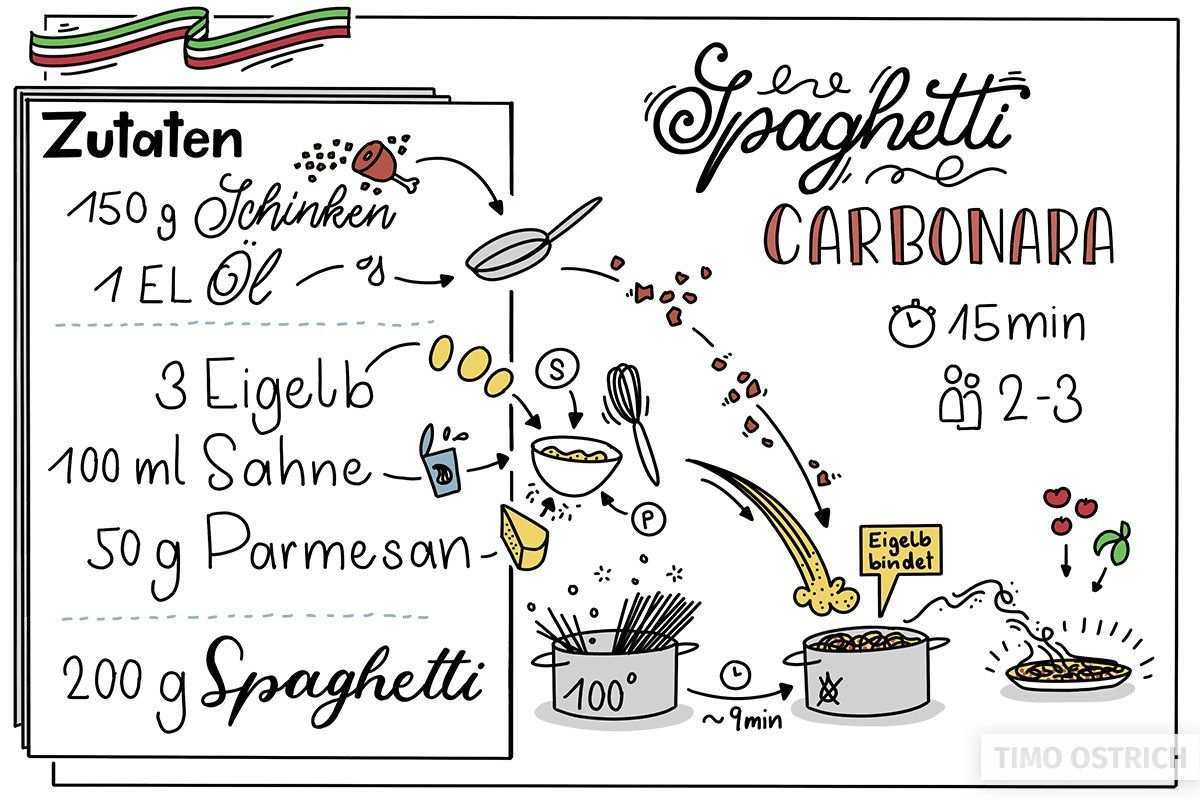 Zutaten
150 g Schinken
1 EL Öl
3 Eigelb
100 ml Sahne
50 g Parmesan
200 g Spaghetti
Spaghetti
CARBONARA
15min
2-3
S
P
Eigelb
bindet
100°
~9min
TIMO OSTRICH